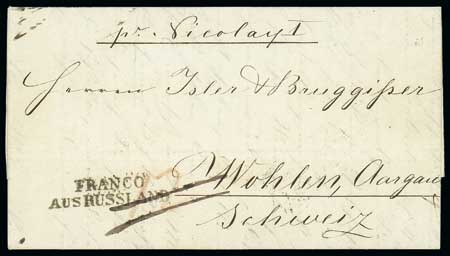 pr. Nicolay I
Herren Isler & Bruggißer
FRANCO
AUS RUSSLAND
Wohlen, Aargau
Schweiz